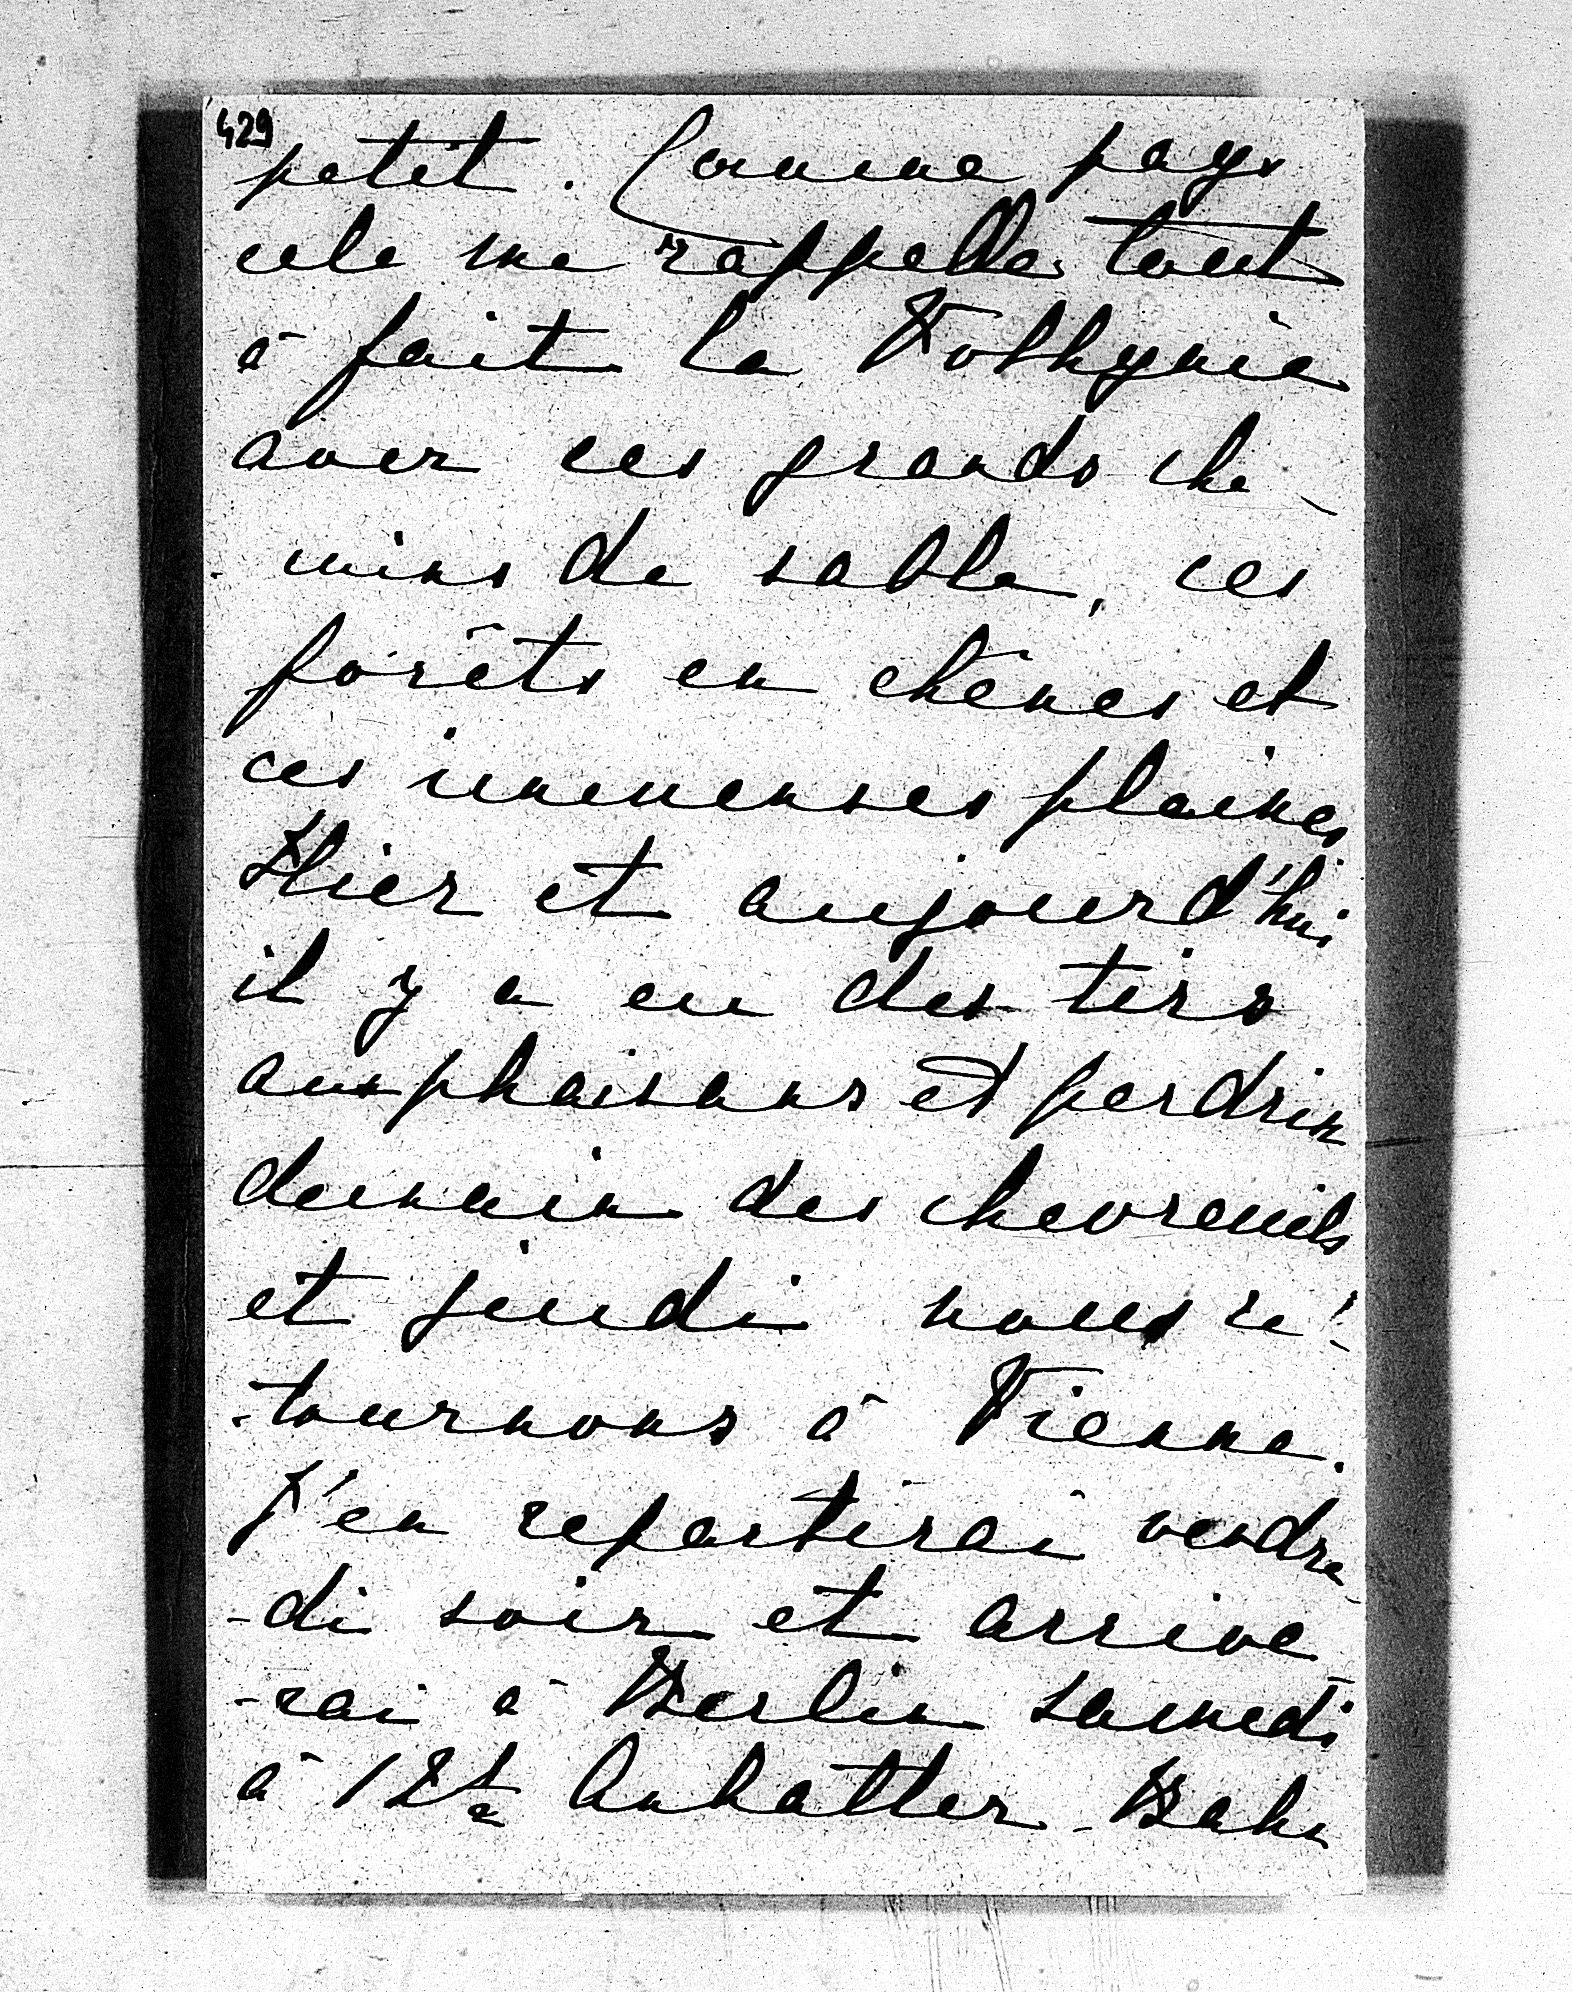 429
petit. Comme pays
cela me rappelle tout
à fait la Volhynie
avec ces grands che-
mins de sable, ces
forêts en chênes et
ces immenses plaines
Hier et aujourd'hui
il y a eu des tirs
aux phaisans et perdrix
demain des chevreuils
et jeudi nous re-
-tournons à Vienne.
J'en repartirai vendre
-di soir et arrive
-rai à Berlin samedi
à 12½ Anhalter-Bahn